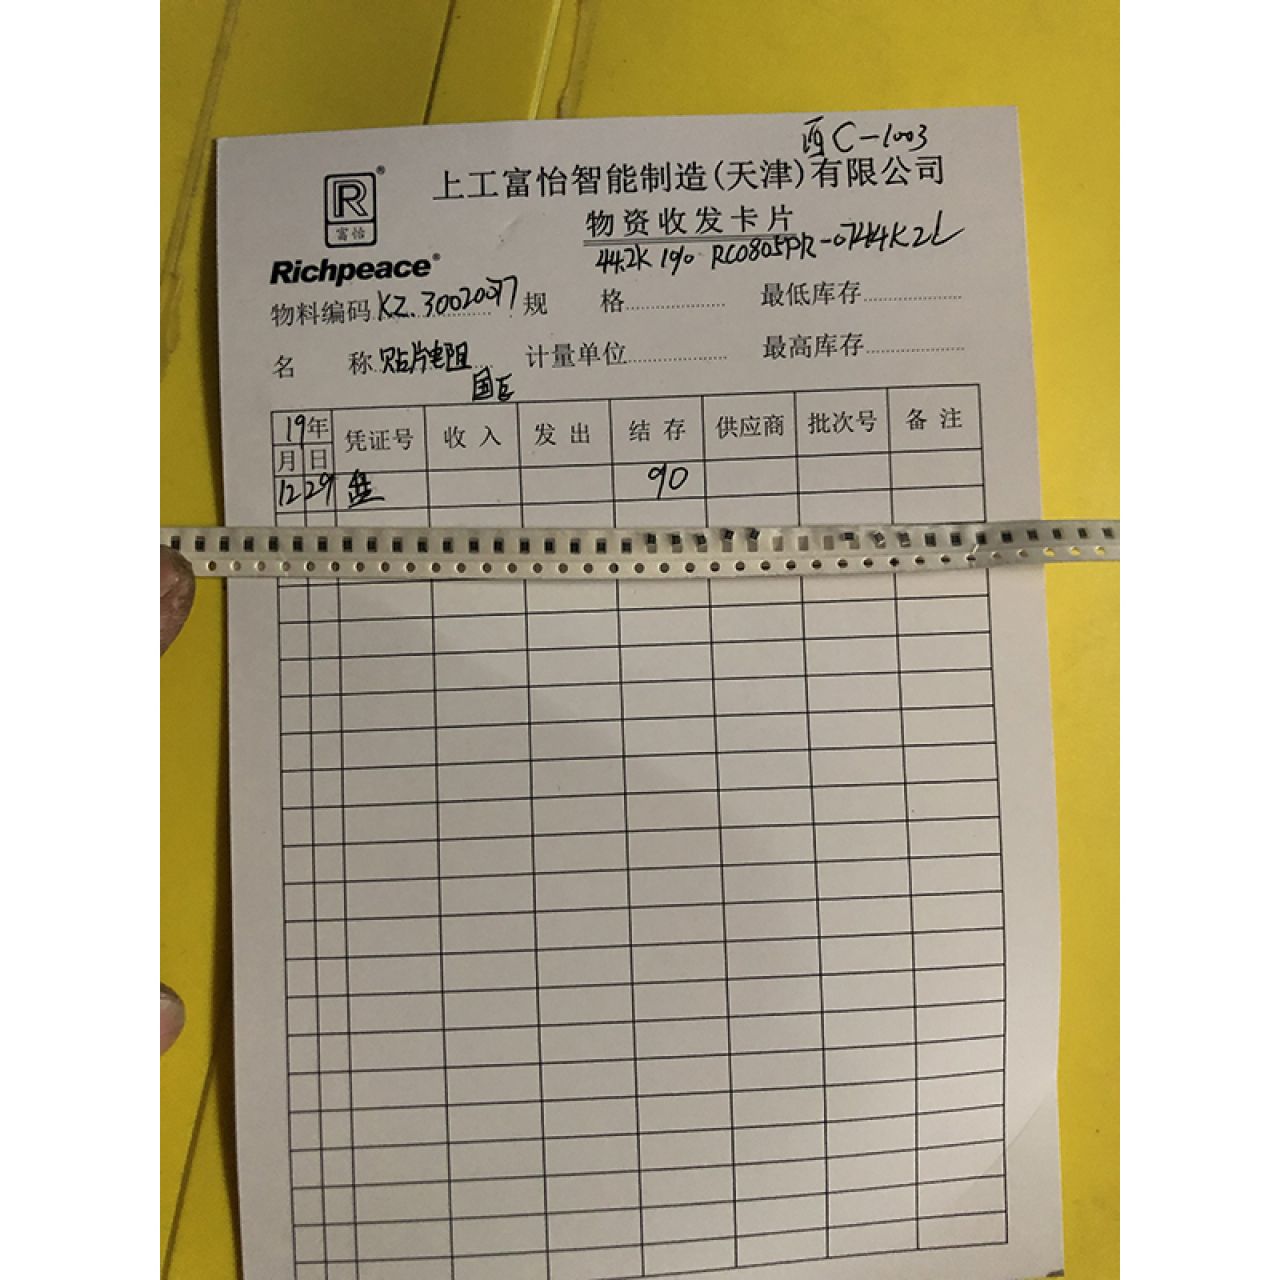 西C-1003
上工富怡智能制造(天津)有限公司
R®
富怡
Richpeace®
物资收发卡片
44.2K 1% RC0805FR-0744K2L
物料编码 KZ.30020077 规 格 最低库存
名 称 贴片电阻 计量单位 最高库存
国巨
19年 凭证号 收入 发出 结存 供应商 批次号 备注
月 日
12 29 盘 90